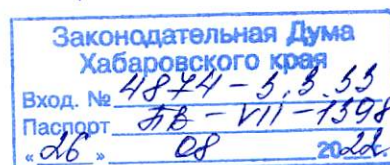 Законодательная Дума
Хабаровского края
Вход. № 4874-3.3.33
Паспорт ПВ-VII-1398
«26» 08 2022.